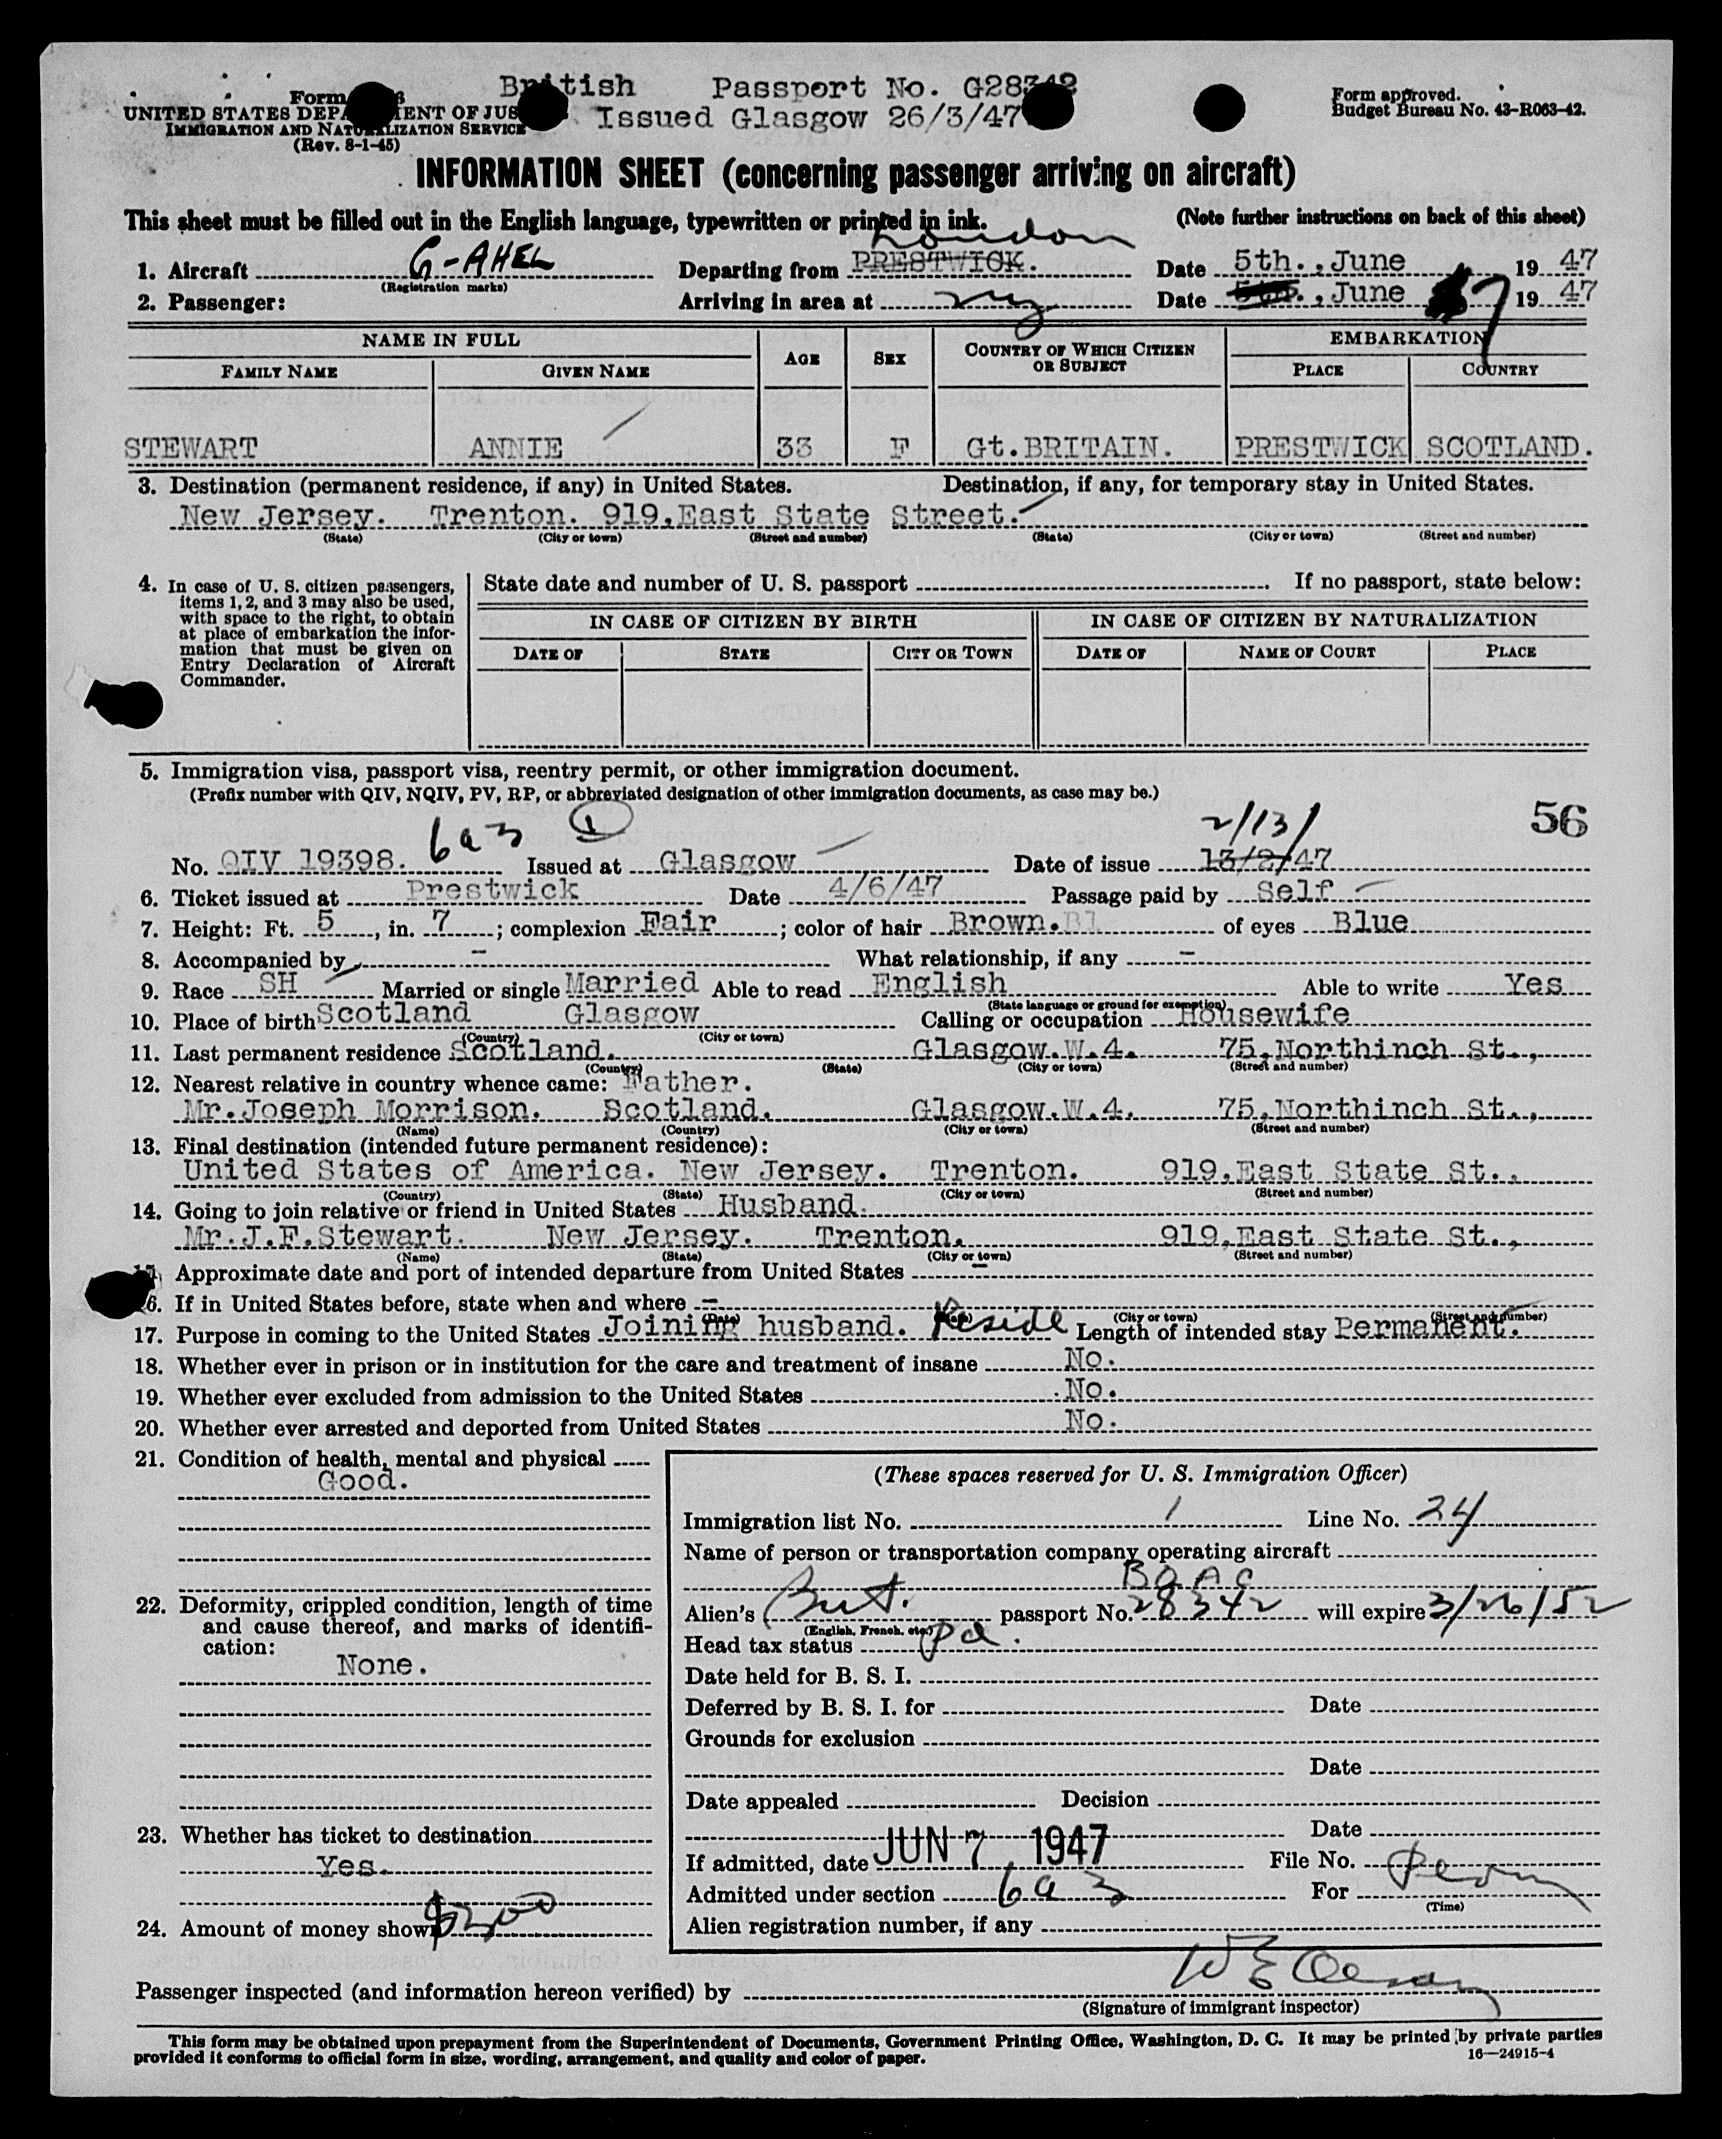 British Passport No. G28342
Form
UNITED STATES DEPARTMENT OF JUS
Issued Glasgow 26/3/47
IMMIGRATION AND NATURALIZATION SERVICE
(Rev. 8-1-45)
Form approved.
Budget Bureau No. 43-R063-42.
INFORMATION SHEET (concerning passenger arriving on aircraft)
This sheet must be filled out in the English language, typewritten or printed in ink. (Note further instructions on back of this sheet)
London
1. Aircraft G-AHEL Departing from PRESTWICK. Date 5th., June 19 47
(Registration marks)
2. Passenger: Arriving in area at NY Date 5th., June 7 19 47
NAME IN FULL AGE SEX COUNTRY OF WHICH CITIZEN OR SUBJECT EMBARKATION
FAMILY NAME GIVEN NAME PLACE COUNTRY
STEWART ANNIE 33 F Gt.BRITAIN. PRESTWICK SCOTLAND.
3. Destination (permanent residence, if any) in United States. Destination, if any, for temporary stay in United States.
New Jersey. Trenton. 919,East State Street.
(State) (City or town) (Street and number) (State) (City or town) (Street and number)
4. In case of U. S. citizen passengers, items 1, 2, and 3 may also be used, with space to the right, to obtain at place of embarkation the information that must be given on Entry Declaration of Aircraft Commander.
State date and number of U. S. passport If no passport, state below:
IN CASE OF CITIZEN BY BIRTH IN CASE OF CITIZEN BY NATURALIZATION
DATE OF STATE CITY OR TOWN DATE OF NAME OF COURT PLACE
5. Immigration visa, passport visa, reentry permit, or other immigration document.
(Prefix number with QIV, NQIV, PV, RP, or abbreviated designation of other immigration documents, as case may be.)
6a3 1 2/13/ 56
No. QIV 19398. Issued at Glasgow Date of issue 13/2/47
6. Ticket issued at Prestwick Date 4/6/47 Passage paid by Self
7. Height: Ft. 5, in. 7; complexion Fair; color of hair Brown.Bl of eyes Blue
8. Accompanied by - What relationship, if any -
9. Race SH Married or single Married Able to read English Able to write Yes
(State language or ground for exemption)
10. Place of birth Scotland Glasgow Calling or occupation Housewife
(Country) (City or town)
11. Last permanent residence Scotland. Glasgow.W.4. 75,Northinch St.,
(Country) (State) (City or town) (Street and number)
12. Nearest relative in country whence came: Father.
Mr.Joseph Morrison. Scotland. Glasgow.W.4. 75,Northinch St.,
(Name) (Country) (City or town) (Street and number)
13. Final destination (intended future permanent residence):
United States of America. New Jersey. Trenton. 919,East State St.,
(Country) (State) (City or town) (Street and number)
14. Going to join relative or friend in United States Husband.
Mr.J.F.Stewart. New Jersey. Trenton. 919,East State St.,
(Name) (State) (City or town) (Street and number)
15. Approximate date and port of intended departure from United States -
16. If in United States before, state when and where -
(Date) (City or town) (Street and number)
17. Purpose in coming to the United States Joining husband. Reside Length of intended stay Permanent.
18. Whether ever in prison or in institution for the care and treatment of insane No.
19. Whether ever excluded from admission to the United States No.
20. Whether ever arrested and deported from United States No.
21. Condition of health, mental and physical
Good.
22. Deformity, crippled condition, length of time and cause thereof, and marks of identification:
None.
23. Whether has ticket to destination
Yes.
24. Amount of money shown $300
(These spaces reserved for U. S. Immigration Officer)
Immigration list No. 1 Line No. 24
Name of person or transportation company operating aircraft
BOAC
Alien's Brit. passport No. 28342 will expire 3/26/52
(English, French, etc.)
Head tax status Pd.
Date held for B. S. I.
Deferred by B. S. I. for Date
Grounds for exclusion
Date
Date appealed Decision
Date
If admitted, date JUN 7 1947 File No.
Admitted under section 6a3 For Perm
(Time)
Alien registration number, if any
Passenger inspected (and information hereon verified) by
(Signature of immigrant inspector)
This form may be obtained upon prepayment from the Superintendent of Documents, Government Printing Office, Washington, D. C. It may be printed by private parties
provided it conforms to official form in size, wording, arrangement, and quality and color of paper.
16—24915-4